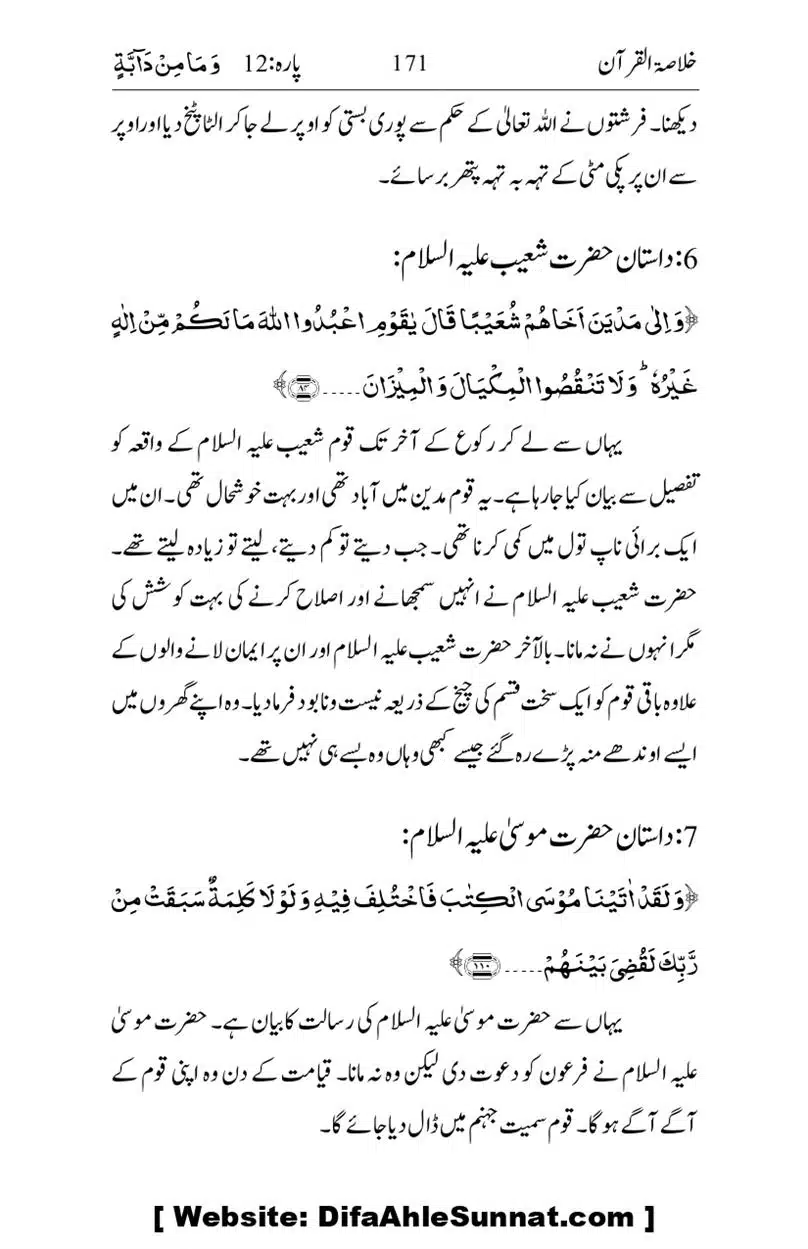 خلاصۃ القرآن 171 پارہ:12 وَمَا مِنْ دَآبَّةٍ
دیکھنا۔ فرشتوں نے اللہ تعالیٰ کے حکم سے پوری بستی کو اوپر لے جا کر الٹا پٹخ دیا اور اوپر
سے ان پر پکی مٹی کے تہہ بہ تہہ پتھر برسائے۔
6: داستان حضرت شعیب علیہ السلام:
﴿وَ اِلٰى مَدْيَنَ اَخَاهُمْ شُعَيْبًا قَالَ يٰقَوْمِ اعْبُدُوا اللهَ مَا لَكُمْ مِّنْ اِلٰهٍ
غَيْرُهٗ ؕ وَ لَا تَنْقُصُوا الْمِكْيَالَ وَ الْمِيْزَانَ ..... ﴿۸۴﴾﴾
یہاں سے لے کر رکوع کے آخر تک قوم شعیب علیہ السلام کے واقعہ کو
تفصیل سے بیان کیا جا رہا ہے۔ یہ قوم مدین میں آباد تھی اور بہت خوشحال تھی۔ ان میں
ایک برائی ناپ تول میں کمی کرنا تھی۔ جب دیتے تو کم دیتے، لیتے تو زیادہ لیتے تھے۔
حضرت شعیب علیہ السلام نے انہیں سمجھانے اور اصلاح کرنے کی بہت کوشش کی
مگر انہوں نے نہ مانا۔ بالآخر حضرت شعیب علیہ السلام اور ان پر ایمان لانے والوں کے
علاوہ باقی قوم کو ایک سخت قسم کی چیخ کے ذریعہ نیست و نابود فرما دیا۔ وہ اپنے گھروں میں
ایسے اوندھے منہ پڑے رہ گئے جیسے کبھی وہاں وہ بسے ہی نہیں تھے۔
7: داستان حضرت موسیٰ علیہ السلام:
﴿وَ لَقَدْ اٰتَيْنَا مُوْسَى الْكِتٰبَ فَاخْتُلِفَ فِيْهِ وَ لَوْ لَا كَلِمَةٌ سَبَقَتْ مِنْ
رَّبِّكَ لَقُضِيَ بَيْنَهُمْ ..... ﴿۱۱۰﴾﴾
یہاں سے حضرت موسیٰ علیہ السلام کی رسالت کا بیان ہے۔ حضرت موسیٰ
علیہ السلام نے فرعون کو دعوت دی لیکن وہ نہ مانا۔ قیامت کے دن وہ اپنی قوم کے
آگے آگے ہو گا۔ قوم سمیت جہنم میں ڈال دیا جائے گا۔
[ Website: DifaAhleSunnat.com ]